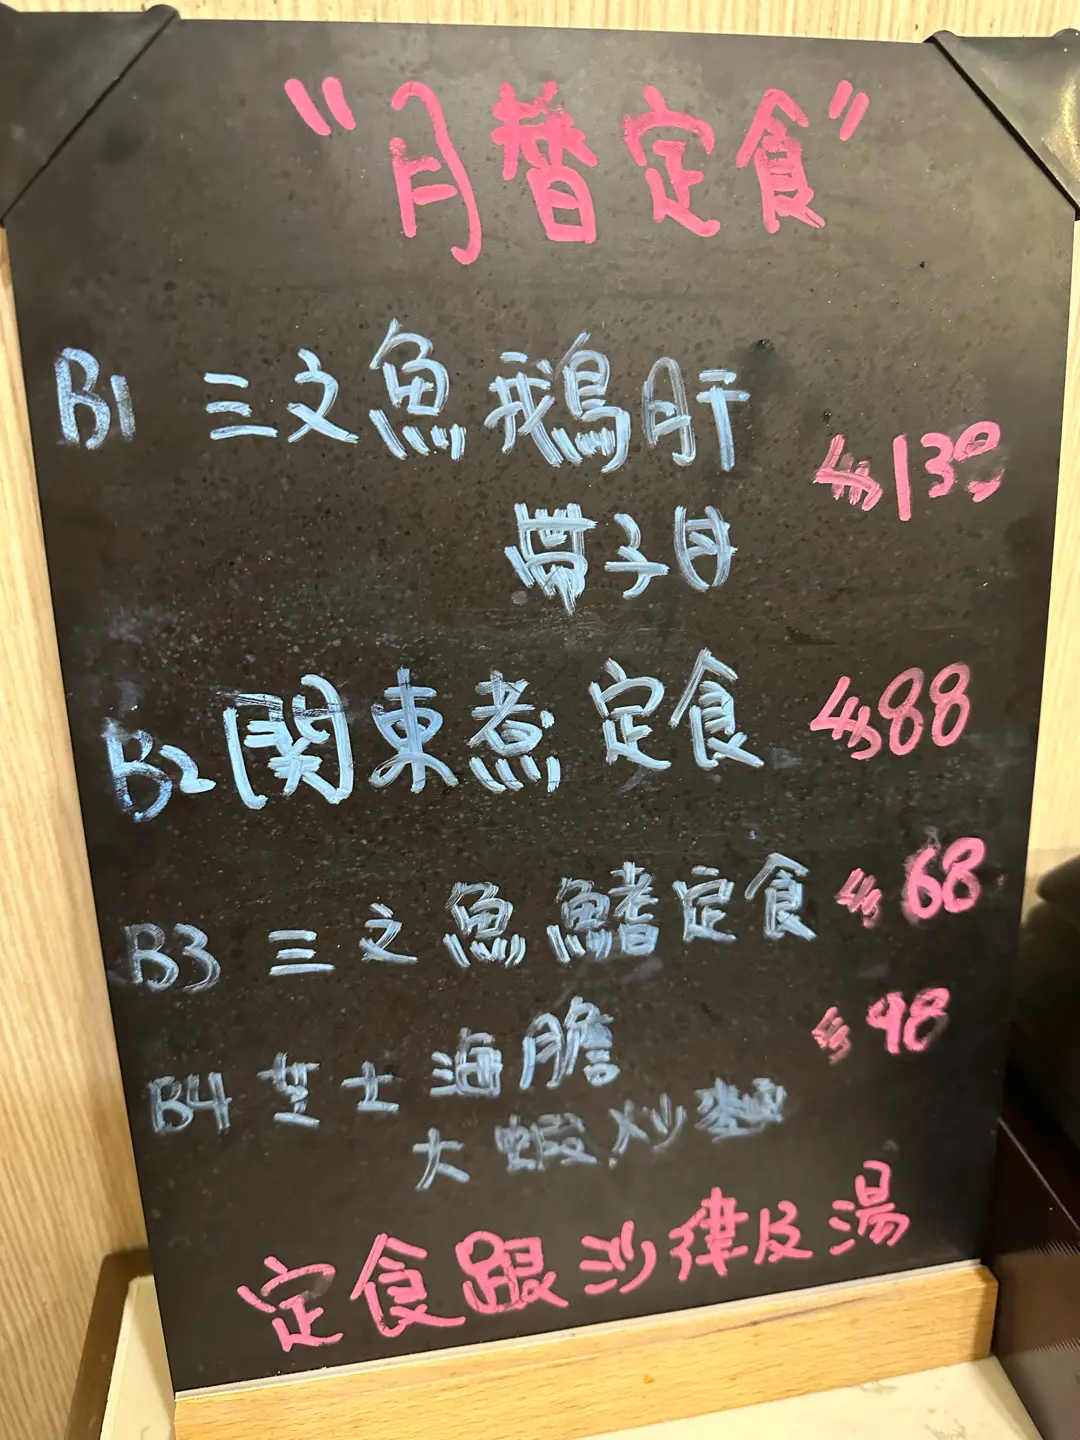 "月替定食"
B1 三文魚鵝肝
帶子丼 $138
B2 関東煮定食 $88
B3 三文魚鰭定食 $68
B4 芝士海膽 $98
大蝦炒麵
定食跟沙律及湯